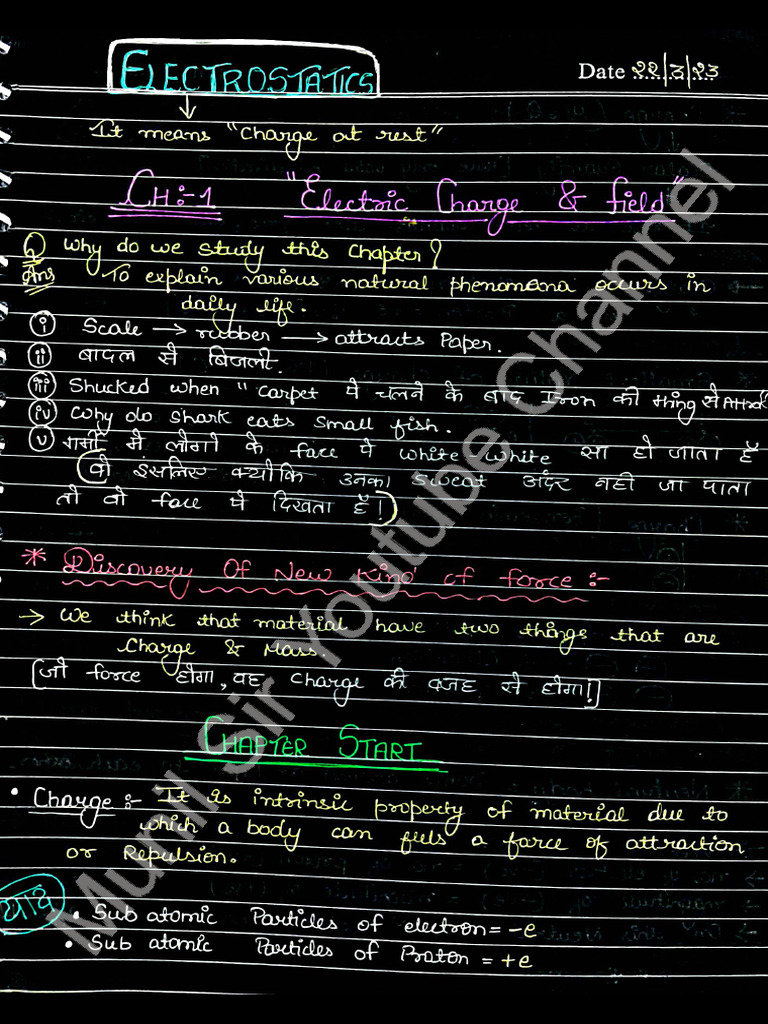 ELECTROSTATICS
Date २२/३/२३
It means "Charge at rest"
CH:-1 "Electric Charge & field"
Q Why do we study this Chapter?
Ans To explain various natural phenomena occurs in
daily life.
(i) Scale → rubber → attracts Paper.
(ii) बादल से बिजली.
(iii) Shucked when "carpet पे चलने के बाद Iron की thing से
(iv) Why do Shark eats small fish.
(v) गर्मी मे लोगो के face पे white white सा हो जाता है
(वो इसलिए क्योकि उनका sweat अंदर नही जा पाता
तो वो face पे दिखता है!)
* Discovery Of New Kind of force :-
→ We think that material have two things that are
Charge & Mass.
[जो force होगा, वह charge की वजह से होगा!]
CHAPTER START
• Charge :- It is intrinsic property of material due to
which a body can feels a force of attraction
or Repulsion.
याद
• Sub atomic Particles of electron = -e
• Sub atomic Particles of Proton = +e
Munil Sir Youtube Channel